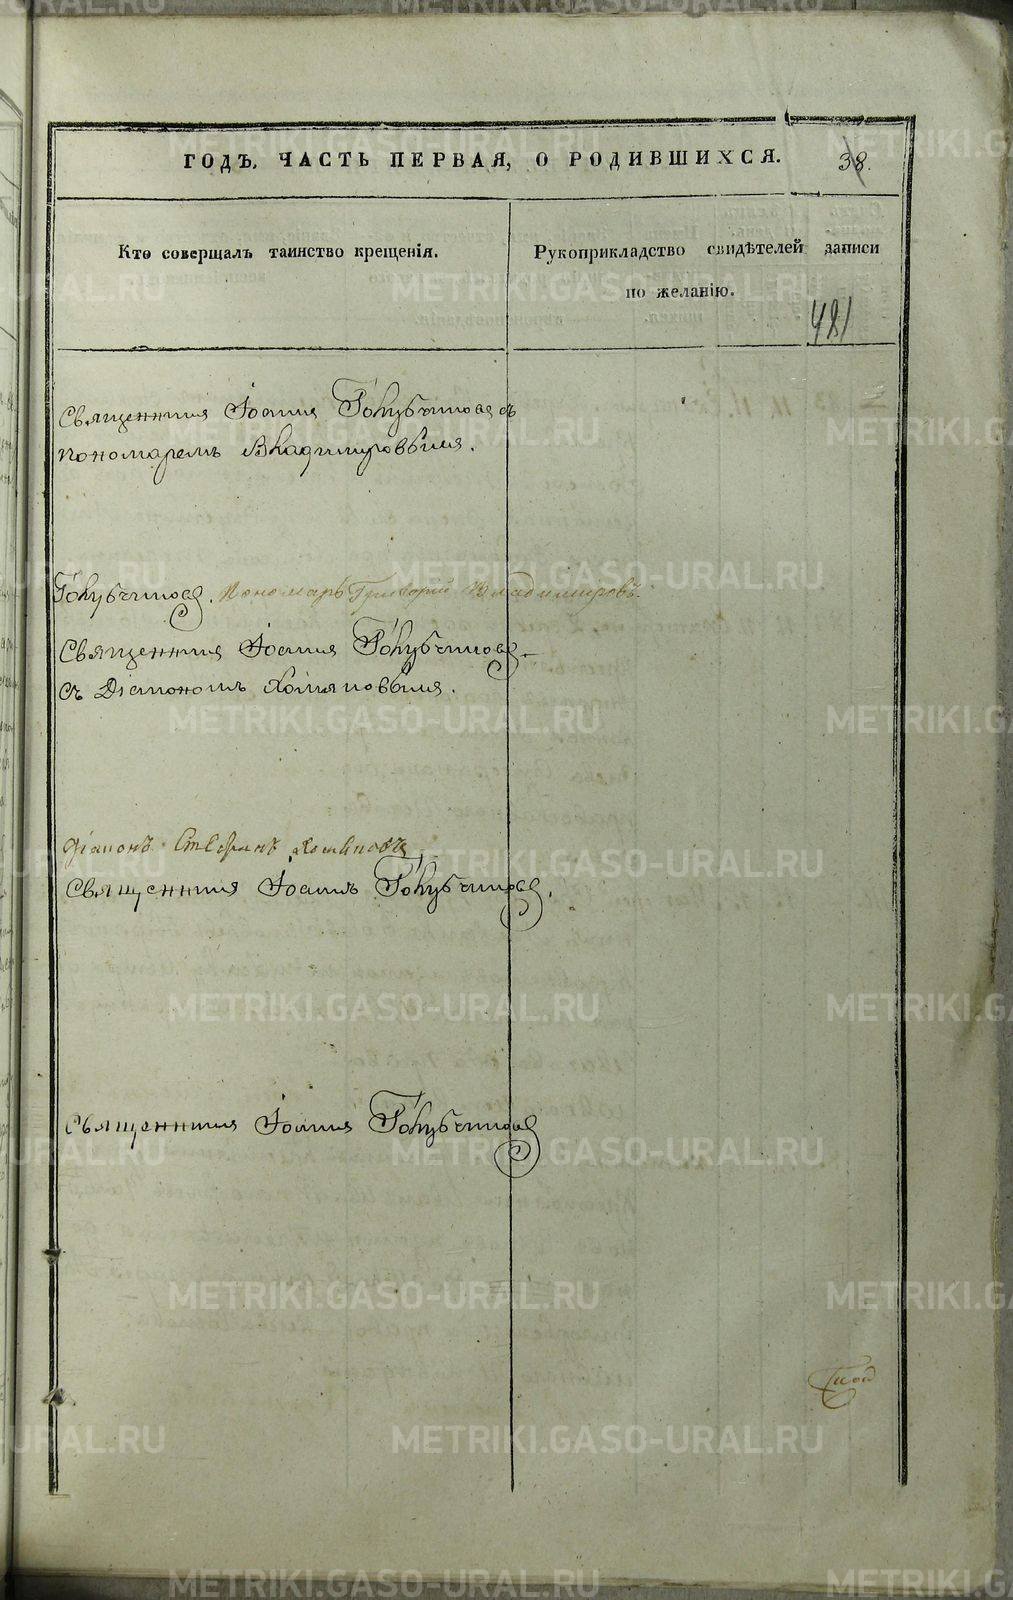 ГОДЪ, ЧАСТЬ ПЕРВАЯ, О РОДИВШИХСЯ.
38.
Кто совершалъ таинство крещенія.
Рукоприкладство свидѣтелей записи
по желанію.
481
Священникъ Іоаннъ Голубчиковъ съ
пономаремъ Владимировымъ.
Голубчиковъ. Пономарь Григорий Владимировъ.
Священникъ Іоаннъ Голубчиковъ
съ Діакономъ Хомяковымъ.
Діаконъ Стефанъ Хомяковъ
Священникъ Іоаннъ Голубчиковъ.
Священникъ Іоаннъ Голубчиковъ
METRIKI.GASO-URAL.RU